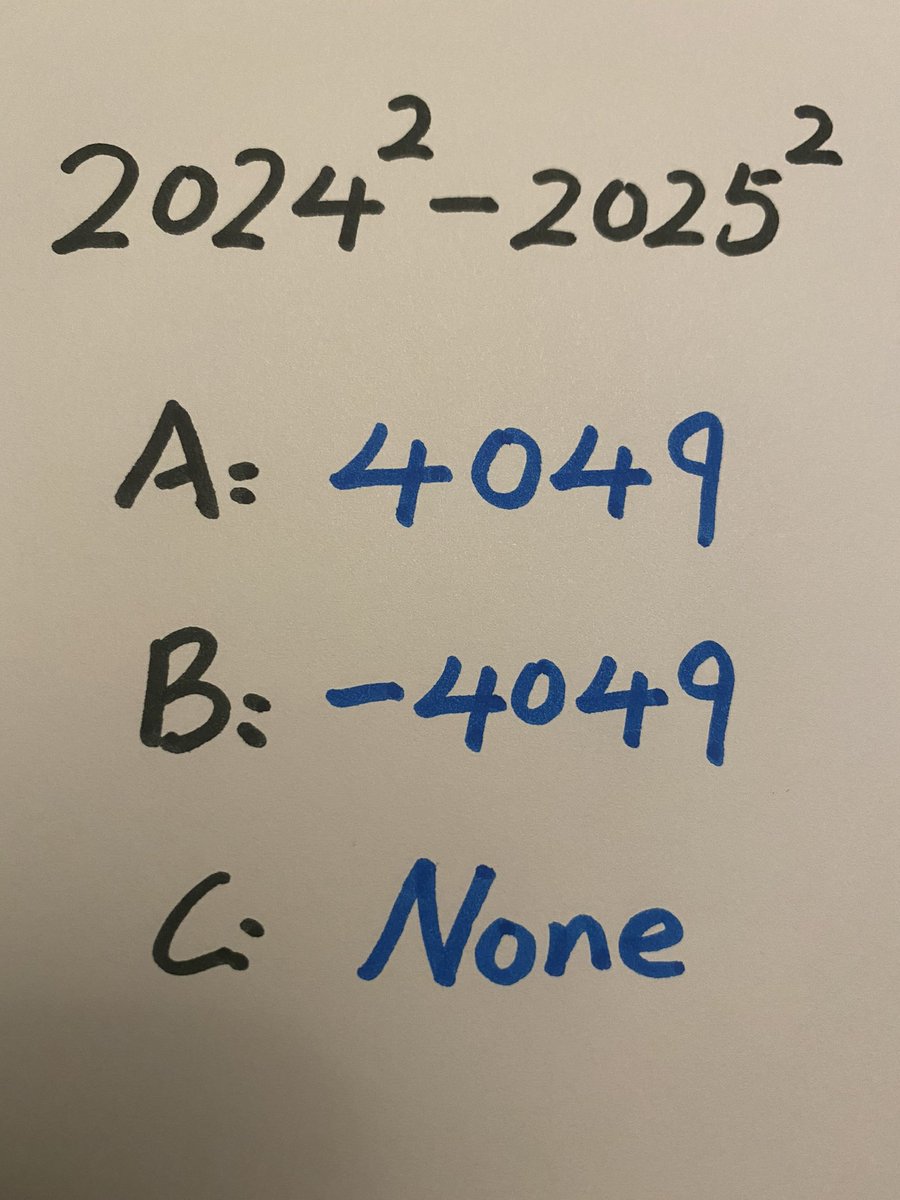 2024² - 2025²
A: 4049
B: -4049
C: None